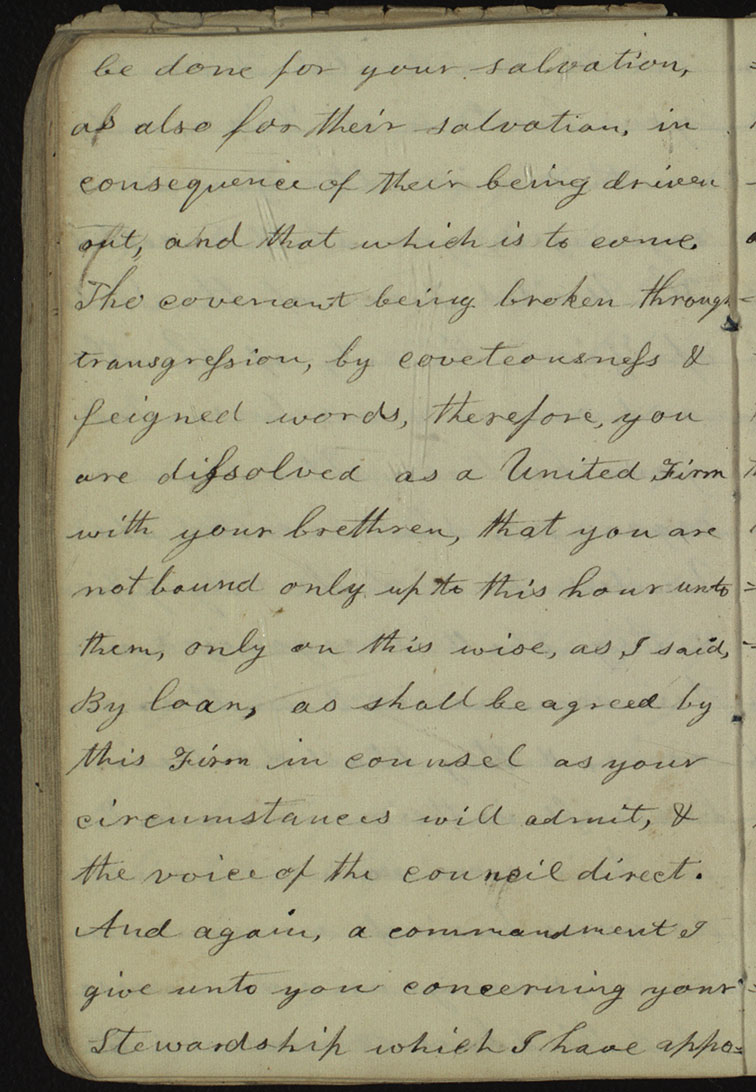 be done for your salvation,
as also for their salvation, in
consequence of their being driven
out, and that which is to come.
The covenant being broken through
transgreſsion, by coveteousneſs &
feigned words, therefore, you
are diſsolved as a United Firm
with your brethren, that you are
not bound only up to this hour unto
them, only on this wise, as I said,
By loan, as shall be agreed by
this Firm in counsel as your
circumstances will admit, &
the voice of the council direct.
And again, a commandment I
give unto you concerning your
Stewardship which I have appo=